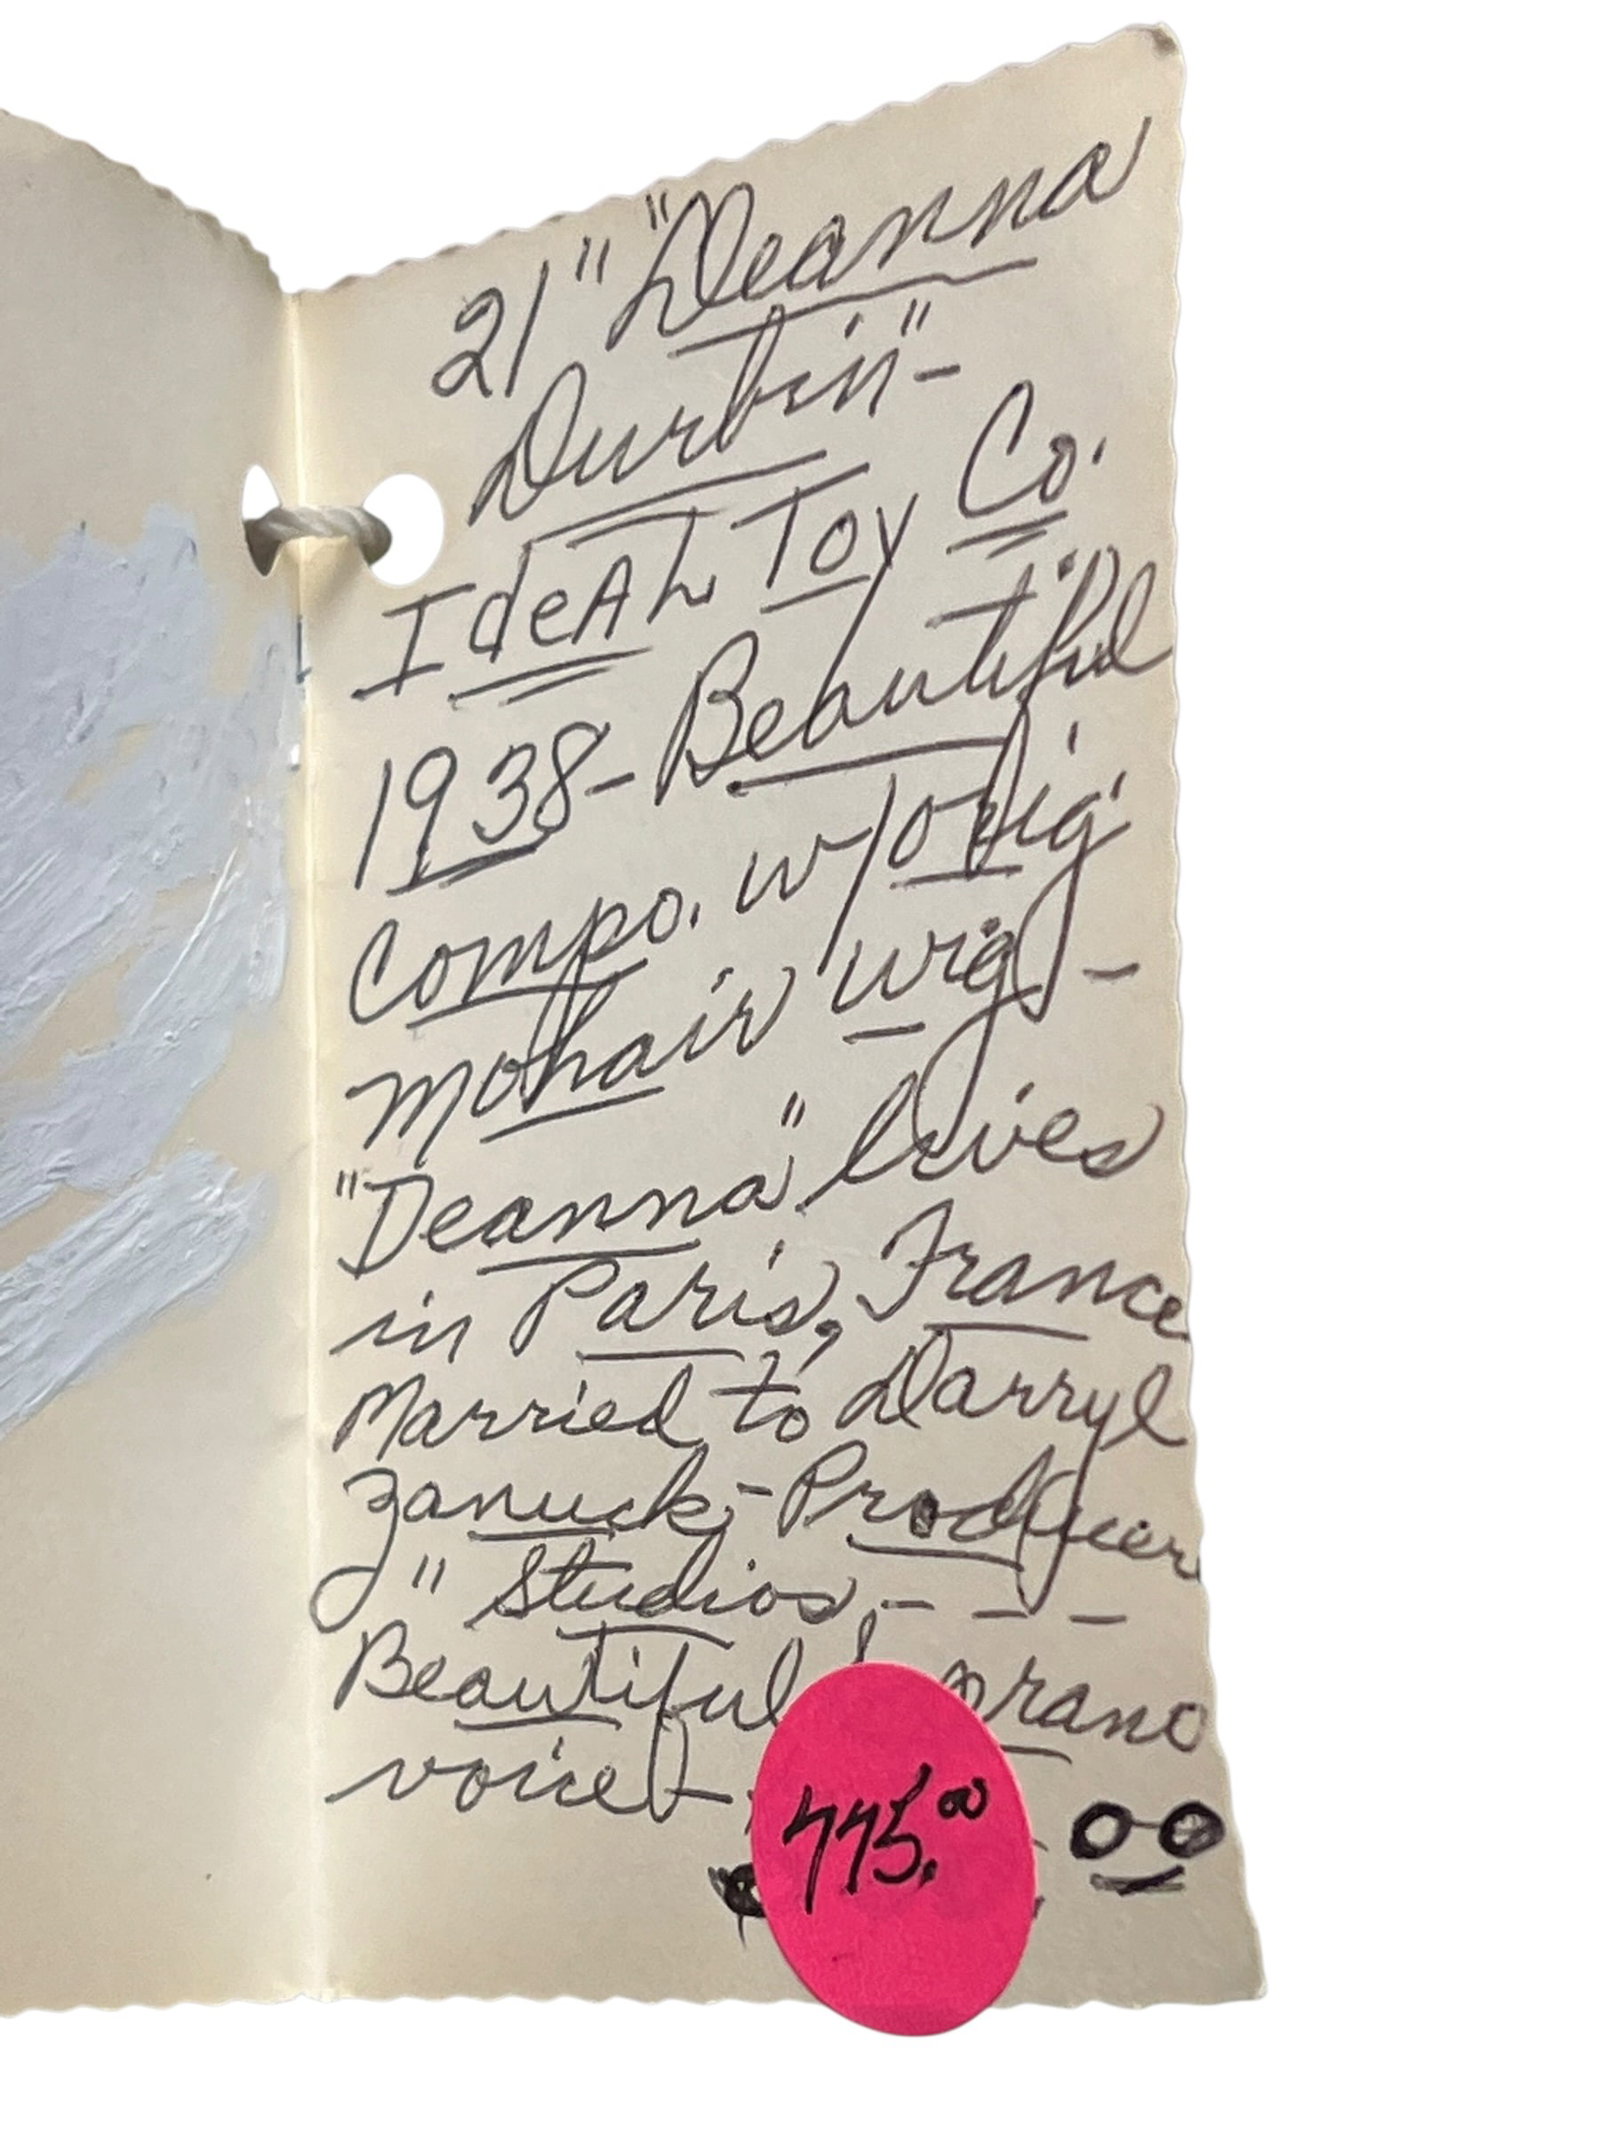 21" "Deanna
Durbin" -
IdeAL Toy Co.
1938 - Beautiful
Compo. w/orig.
mohair wig -
"Deanna" lives
in Paris, France
Married to Darryl
Zanuck, - Producer
" Studios, - - -
Beautiful
voice -
775.00